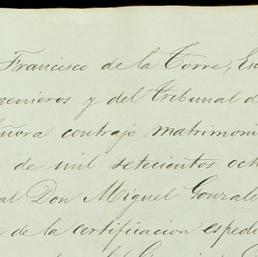 Francisco de la Torre, Es
genieros y del Tribunal d
ñora contrajo matrimoni
de mil setecientos och
al Don Miguel Gonzal
e de la certificacion espedi